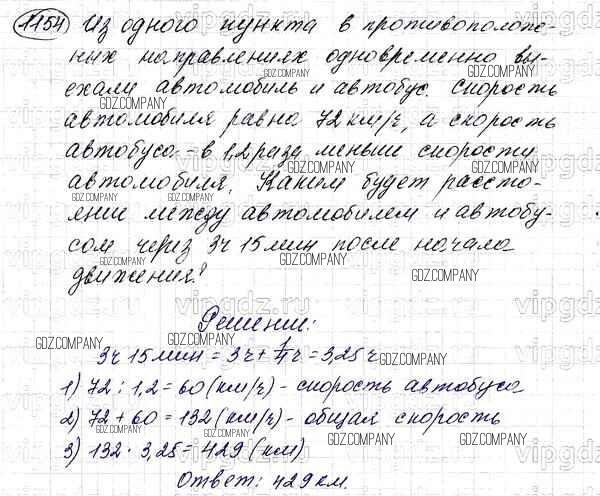 1154 Из одного пункта в противополож-
ных направлениях одновременно вы-
ехали автомобиль и автобус. Скорость
автомобиля равна 72 км/ч, а скорость
автобуса - в 1,2 раза меньше скорости
автомобиля. Каким будет рассто-
яние между автомобилем и автобу-
сом через 3ч 15 мин после начала
движения?
Решение:
3ч 15 мин = 3ч + 1/4 ч = 3,25 ч
1) 72 : 1,2 = 60 (км/ч) - скорость автобуса
2) 72 + 60 = 132 (км/ч) - общая скорость
3) 132 · 3,25 = 429 (км)
Ответ: 429 км.
vipgdz.ru
GDZ.COMPANY